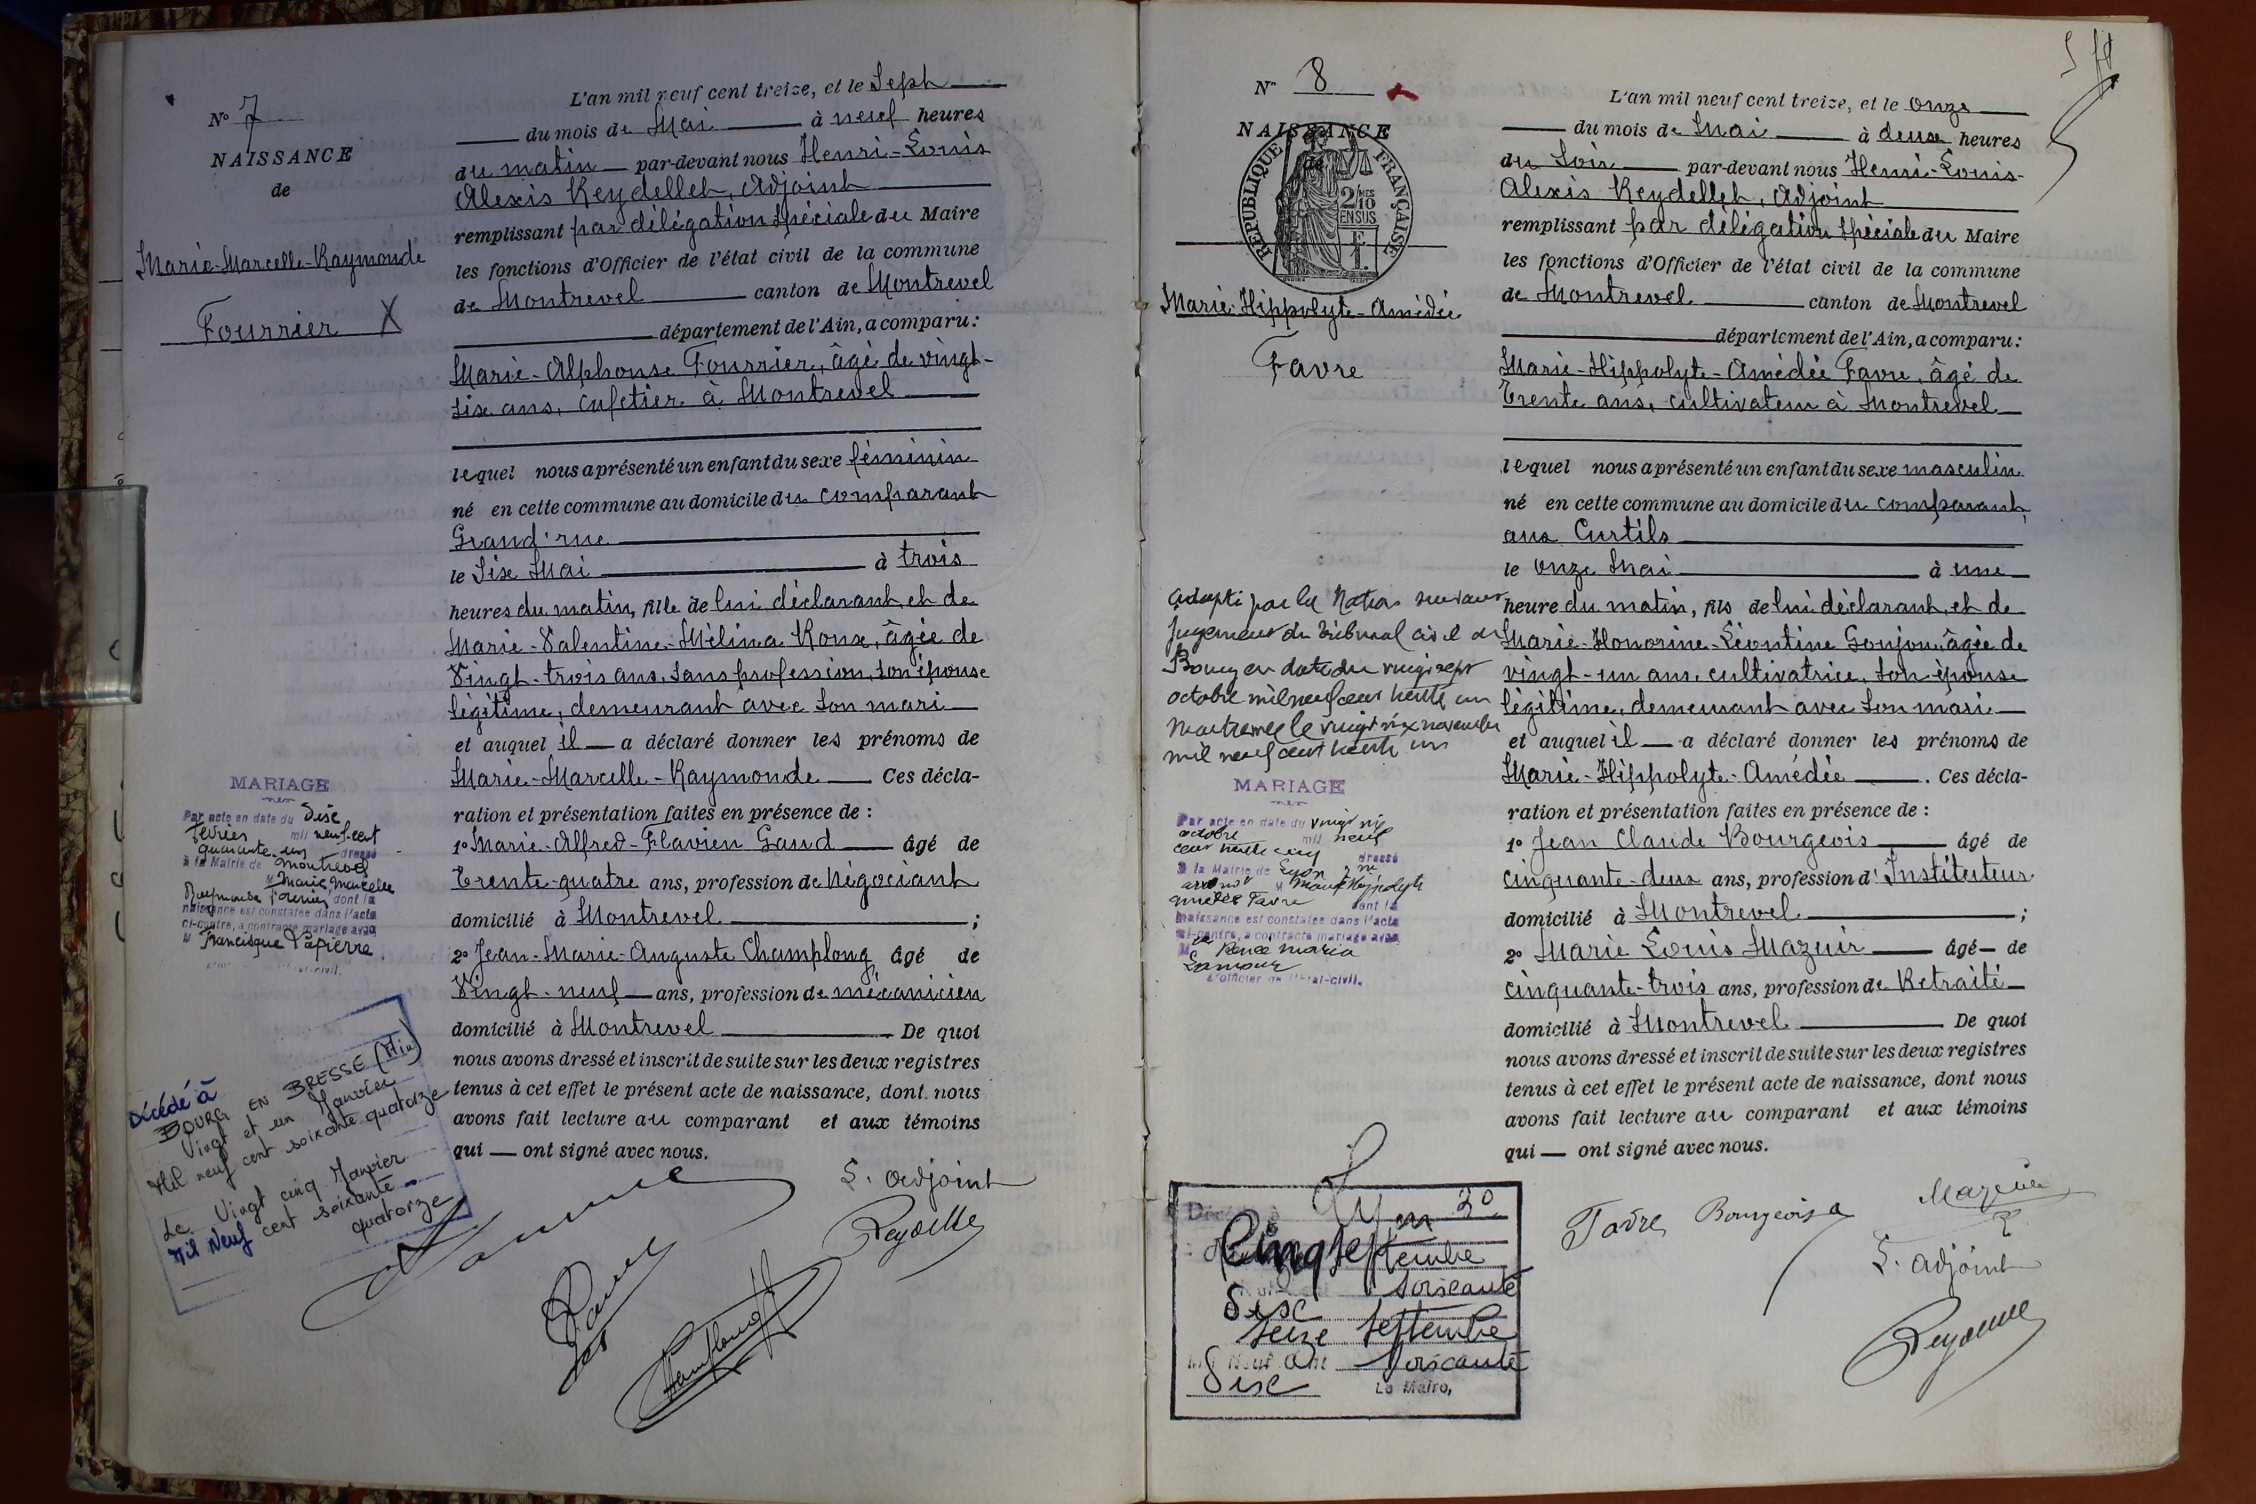 N° 7
NAISSANCE
de
Marie-Marcelle-Raymonde
Fourrier X
L'an mil neuf cent treize, et le Sept
du mois de Mai à neuf heures
du matin par-devant nous Henri-Louis
Alexis Reydellet, Adjoint
remplissant par délégation spéciale du Maire
les fonctions d'Officier de l'état civil de la commune
de Montrevel canton de Montrevel
département de l'Ain, a comparu :
Marie-Alphonse Fourrier, âgé de vingt-
six ans, cafetier à Montrevel
lequel nous a présenté un enfant du sexe féminin
né en cette commune au domicile du comparant
Grand'rue
le Six Mai à trois
heures du matin, fille de lui déclarant et de
Marie-Valentine-Mélina Roux, âgée de
Vingt-trois ans, sans profession, son épouse
légitime, demeurant avec son mari
et auquel il a déclaré donner les prénoms de
Marie-Marcelle-Raymonde Ces décla-
ration et présentation faites en présence de :
1° Marie-Alfred-Flavien Gaud âgé de
Trente-quatre ans, profession de Négociant
domicilié à Montrevel ;
2° Jean-Marie-Auguste Champlong, âgé de
Vingt-neuf ans, profession de mécanicien
domicilié à Montrevel De quoi
nous avons dressé et inscrit de suite sur les deux registres
tenus à cet effet le présent acte de naissance, dont nous
avons fait lecture au comparant et aux témoins
qui ont signé avec nous.
L'adjoint
Reydellet
MARIAGE
Par acte en date du dix
février mil neuf cent
quarante-un dressé
à la Mairie de Montrevel
M Marie Marcelle
Raymonde Fourrier dont la
naissance est constatée dans l'acte
ci-contre, a contracté mariage avec
M Francisque Lapierre
Décédé à
BOURG EN BRESSE (Ain)
Vingt et un Janvier
Mil neuf cent soixante quatorze
Le Vingt cinq Janvier
Mil Neuf cent soixante
quatorze
N° 8
NAISSANCE
de
RÉPUBLIQUE FRANÇAISE
2/10
EN SUS
Marie-Hippolyte-Amédée
Favre
L'an mil neuf cent treize, et le onze
du mois de Mai à deux heures
du Soir par-devant nous Henri-Louis-
Alexis Reydellet, Adjoint
remplissant par délégation spéciale du Maire
les fonctions d'Officier de l'état civil de la commune
de Montrevel canton de Montrevel
département de l'Ain, a comparu :
Marie-Hippolyte-Amédée Favre, âgé de
Trente ans, cultivateur à Montrevel
lequel nous a présenté un enfant du sexe masculin
né en cette commune au domicile du comparant,
aux Curtils
le onze Mai à une
heure du matin, fils de lui déclarant et de
Marie-Honorine-Léontine Goujon, âgée de
vingt-un ans, cultivatrice, son épouse
légitime, demeurant avec son mari
et auquel il a déclaré donner les prénoms de
Marie-Hippolyte-Amédée . Ces décla-
ration et présentation faites en présence de :
1° Jean Claude Bourgeois âgé de
cinquante-deux ans, profession d'Instituteur
domicilié à Montrevel ;
2° Marie Louis Mazuir âgé de
cinquante-trois ans, profession de Retraité
domicilié à Montrevel De quoi
nous avons dressé et inscrit de suite sur les deux registres
tenus à cet effet le présent acte de naissance, dont nous
avons fait lecture au comparant et aux témoins
qui ont signé avec nous.
Favre Bourgeois Mazuir
L'adjoint
Reydellet
Adopté par la Nation suivant
Jugement du Tribunal civil de
Bourg en date du vingt sept
octobre mil neuf cent trente un
Montrevel le vingt six novembre
mil neuf cent trente un
MARIAGE
Par acte en date du vingt six
octobre mil neuf
cent trente cinq dressé
à la Mairie de Lyon
M Marie Hippolyte
Amédée Favre dont la
naissance est constatée dans l'acte
ci-contre, a contracté mariage avec
M Renée Maria
L'officier de l'état-civil.
Décédé à Lyon 3e
Cinq Septembre
Soixante
Dix
Seize Septembre
Mil Neuf Cent Soixante
Dix
Le Maire,